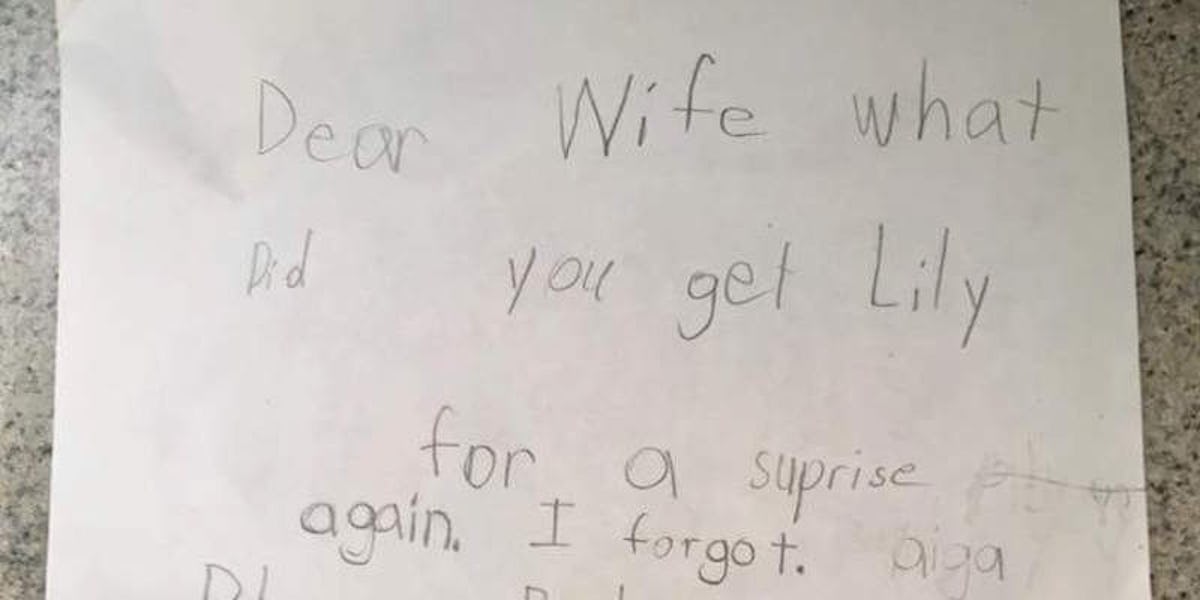 Dear Wife what
Did you get Lily
for a suprise
again. I forgot. aiga